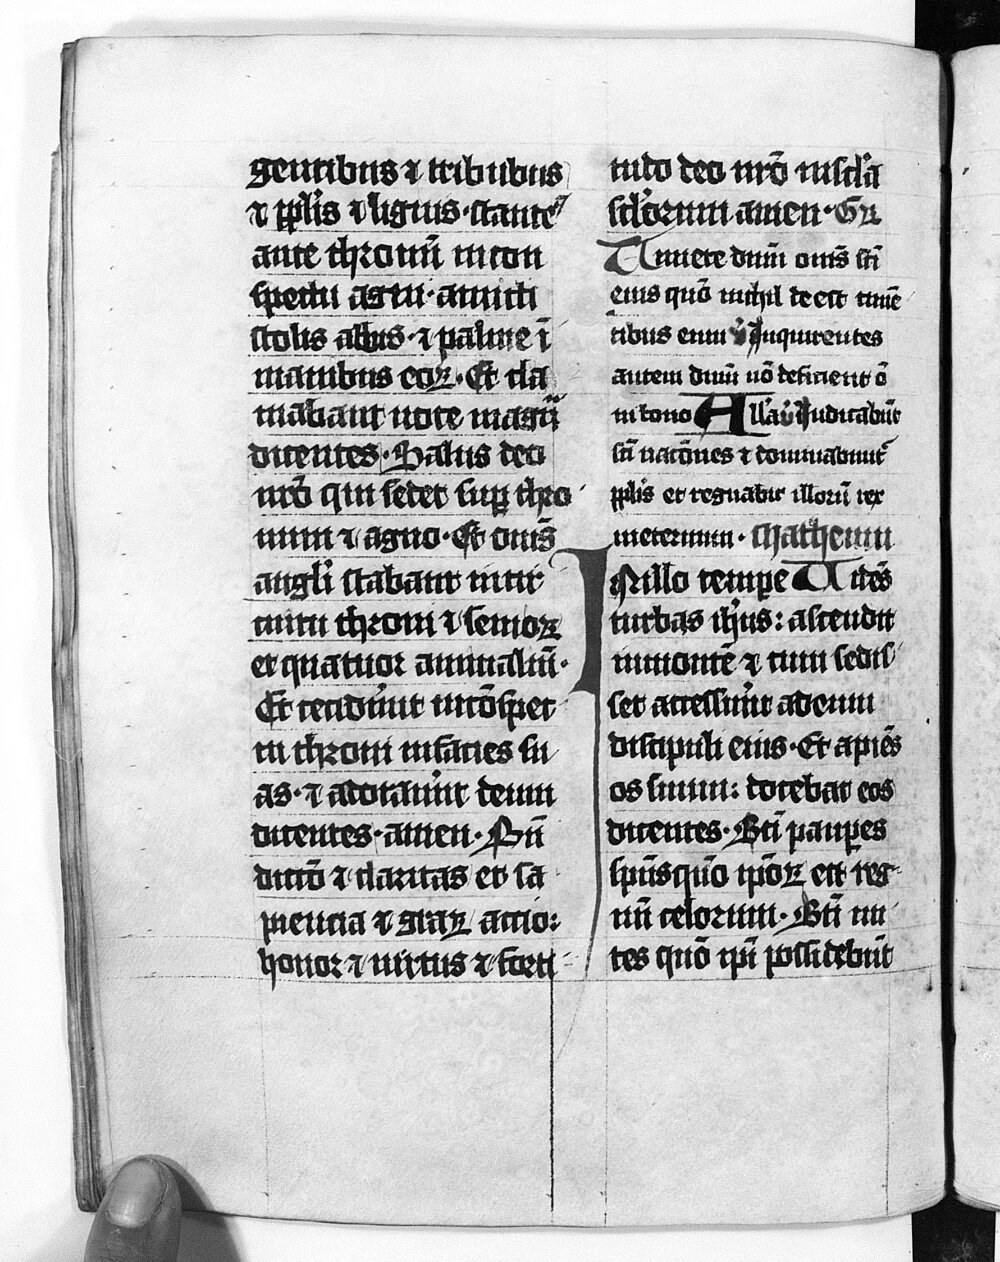 gentibus ⁊ tribubus
⁊ pplīs ⁊ liguis · stante᷒
ante thronū in con
spectu agni · amicti
stolis albis · ⁊ palme ī
manibus eoꝝ · Et cla
mabant uoce magᷓ
dicentes · Salus deo
nr̄o qui sedet suꝑ thro
num ⁊ agno · Et om̄s
angl̄i stabant in cir
cuitu throni ⁊ senioꝝ
et quatuor animaliū ·
Et cecider̄unt in cōspec
tu throni in facies su
as · ⁊ adorauer̄unt deum
dicentes · amen · Bn̄
dictō ⁊ claritas et sa
piencia ⁊ graꝝ actio:
honor ⁊ uirtus ⁊ forti
tudo deo nr̄o in scl̄a
scl̄orum amen · Gr̄
Timete dnm̄ om̄s sc̄i
eius quō nichil deest timē
tibus eum ℣ Inquirentes
autem dnm̄ nō deficient ō
ni bono All̄a ℣ Iudicabūt
sc̄i nacōnes ⁊ dominabunt᷑
pplīs et regnabit illorū rex
in eternum · Matheum
In illo tempe Uidēs
turbas ih̄us: ascendit
in montē ⁊ cum sedis
set accesser̄unt ad eum
discipuli eius · Et apiēs
os suum: docebat eos
dicentes · Bt̄i paupes
spūs quō ipōꝝ est reg
nū celorum · Bt̄i mi
tes quō ip̄i possidebūt